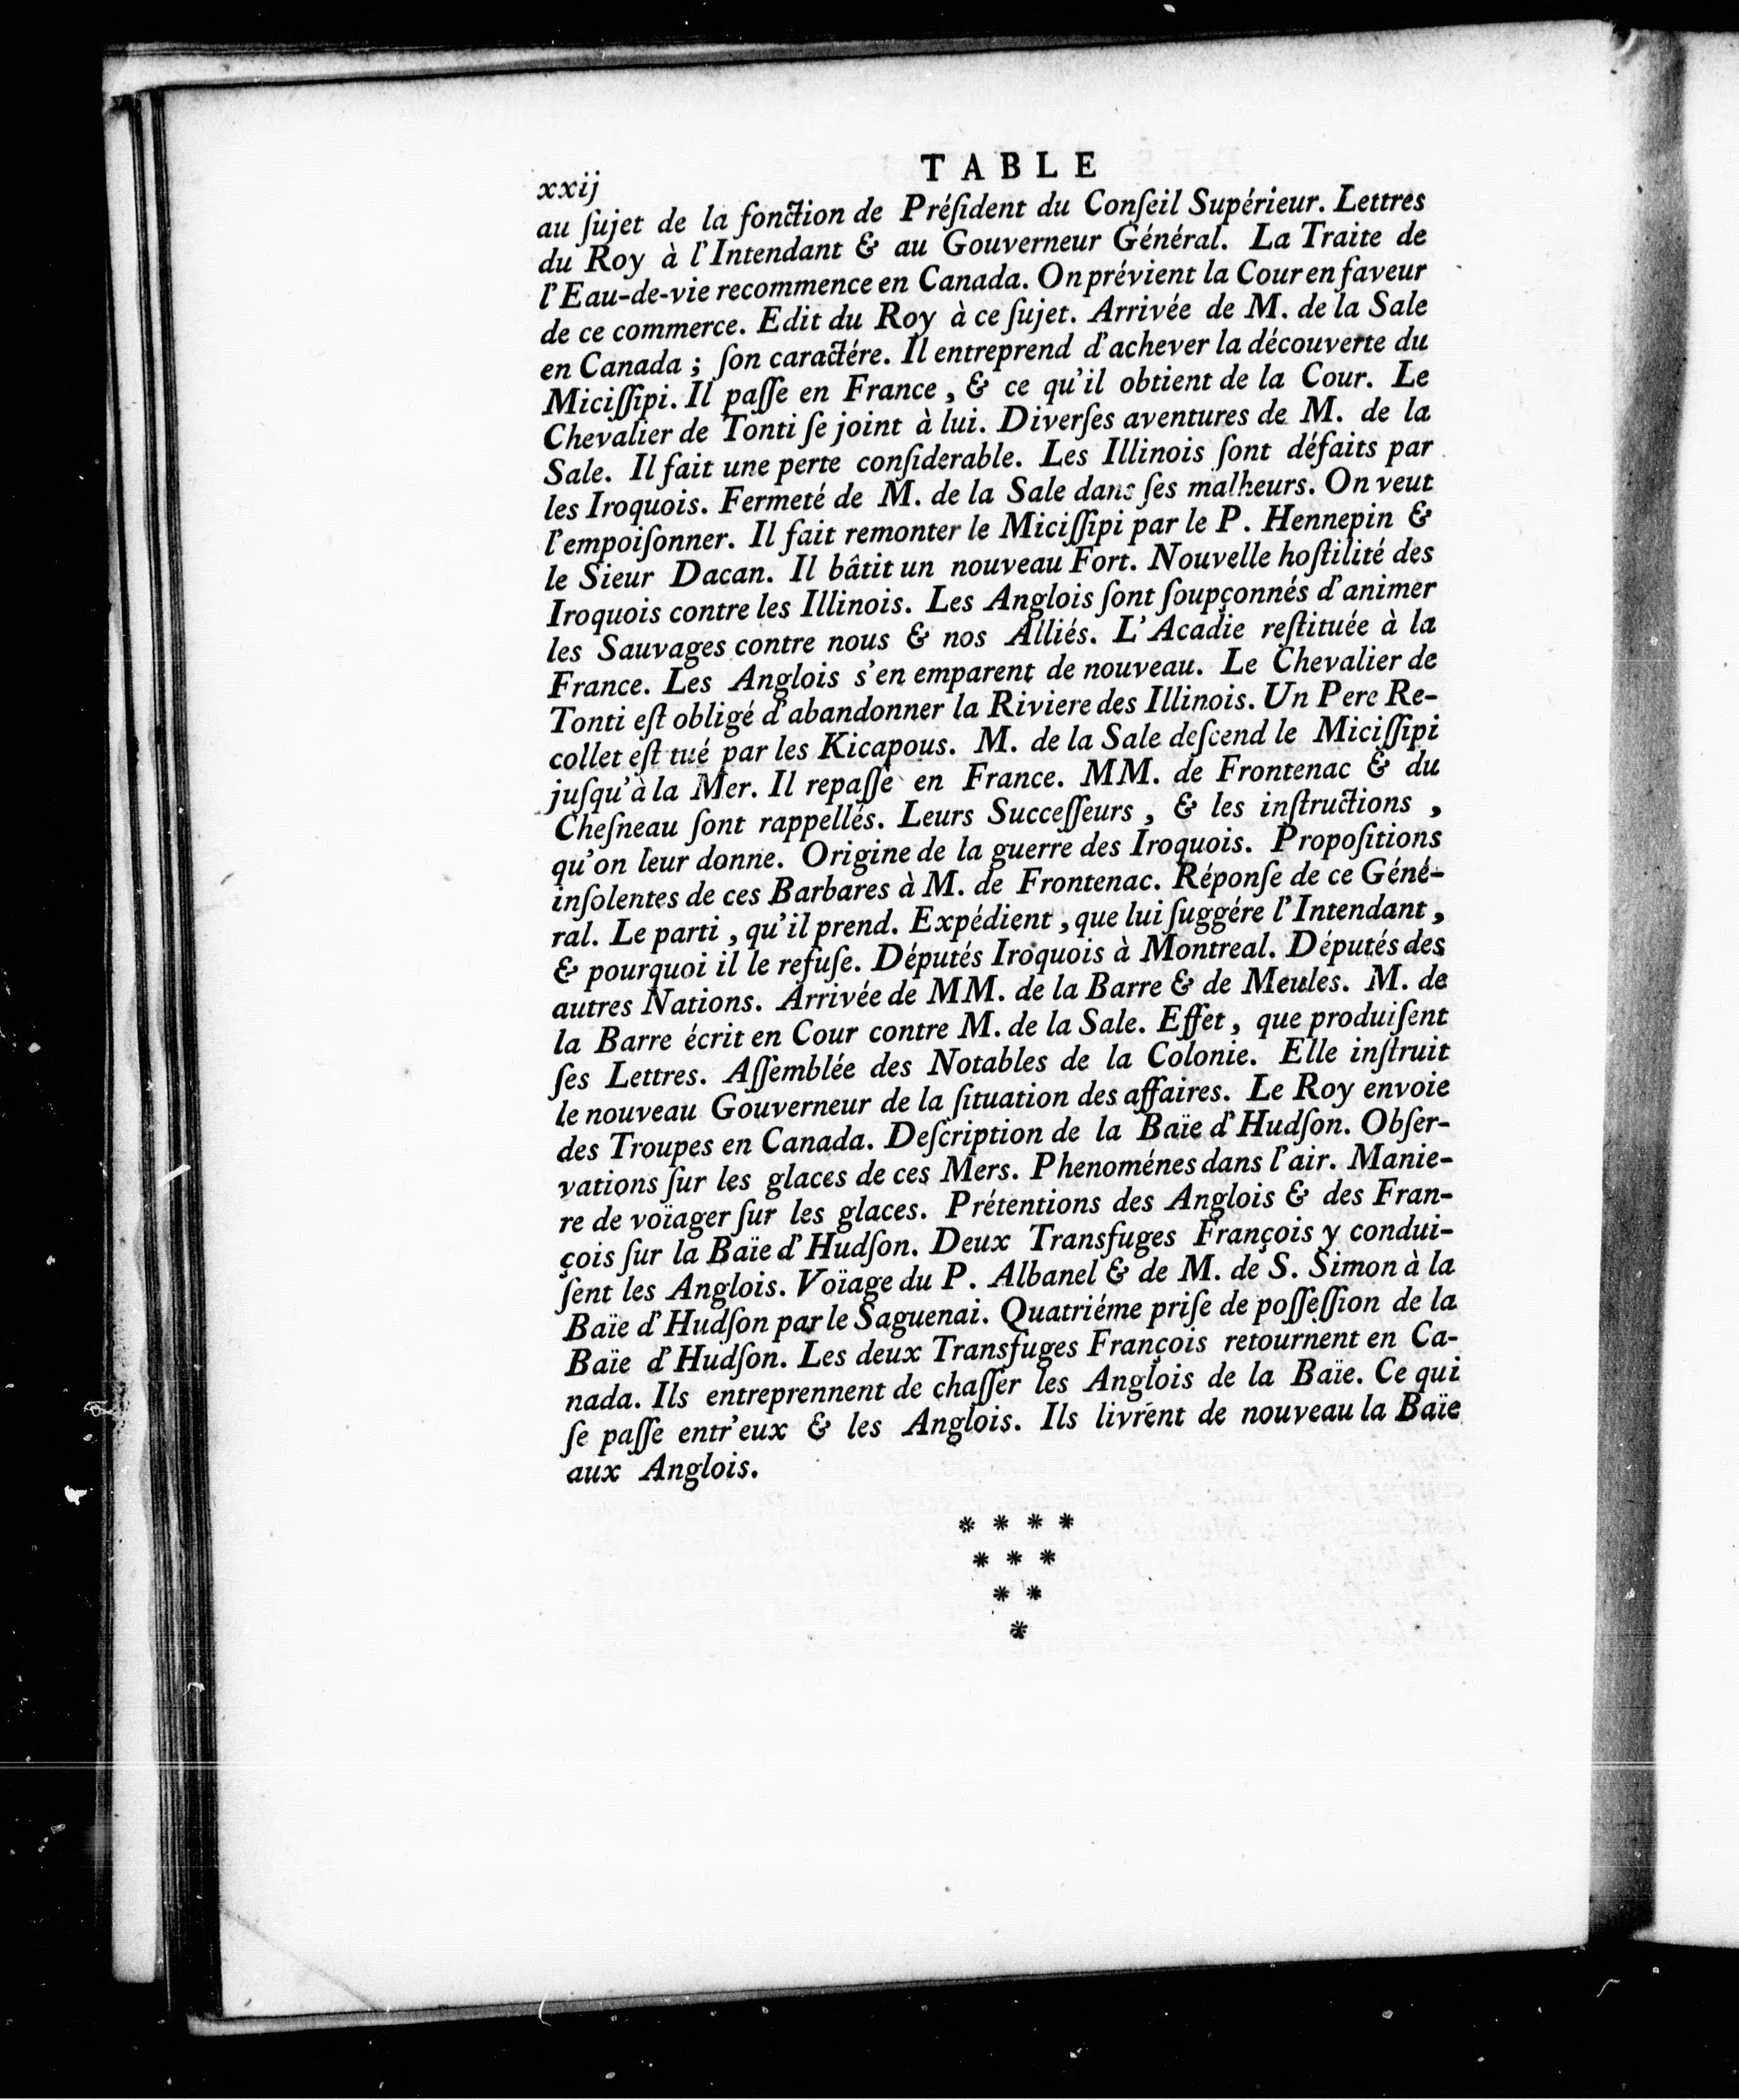 TABLE
xxij
au ſujet de la fonction de Préſident du Conſeil Supérieur. Lettres
du Roy à l'Intendant & au Gouverneur Général. La Traite de
l'Eau-de-vie recommence en Canada. On prévient la Cour en faveur
de ce commerce. Edit du Roy à ce ſujet. Arrivée de M. de la Sale
en Canada ; ſon caractére. Il entreprend d'achever la découverte du
Miciſſipi. Il paſſe en France, & ce qu'il obtient de la Cour. Le
Chevalier de Tonti ſe joint à lui. Diverſes aventures de M. de la
Sale. Il fait une perte conſiderable. Les Illinois ſont défaits par
les Iroquois. Fermeté de M. de la Sale dans ſes malheurs. On veut
l'empoiſonner. Il fait remonter le Miciſſipi par le P. Hennepin &
le Sieur Dacan. Il bâtit un nouveau Fort. Nouvelle hoſtilité des
Iroquois contre les Illinois. Les Anglois ſont ſoupçonnés d'animer
les Sauvages contre nous & nos Alliés. L'Acadie reſtituée à la
France. Les Anglois s'en emparent de nouveau. Le Chevalier de
Tonti eſt obligé d'abandonner la Riviere des Illinois. Un Pere Re-
collet eſt tué par les Kicapous. M. de la Sale deſcend le Miciſſipi
juſqu'à la Mer. Il repaſſe en France. MM. de Frontenac & du
Cheſneau ſont rappellés. Leurs Succeſſeurs, & les inſtructions,
qu'on leur donne. Origine de la guerre des Iroquois. Propoſitions
inſolentes de ces Barbares à M. de Frontenac. Réponſe de ce Géné-
ral. Le parti, qu'il prend. Expédient, que lui ſuggére l'Intendant,
& pourquoi il le refuſe. Députés Iroquois à Montreal. Députés des
autres Nations. Arrivée de MM. de la Barre & de Meules. M. de
la Barre écrit en Cour contre M. de la Sale. Effet, que produiſent
ſes Lettres. Aſſemblée des Notables de la Colonie. Elle inſtruit
le nouveau Gouverneur de la ſituation des affaires. Le Roy envoie
des Troupes en Canada. Deſcription de la Baïe d'Hudſon. Obſer-
vations ſur les glaces de ces Mers. Phenoménes dans l'air. Manie-
re de voïager ſur les glaces. Prétentions des Anglois & des Fran-
çois ſur la Baïe d'Hudſon. Deux Transfuges François y condui-
ſent les Anglois. Voïage du P. Albanel & de M. de S. Simon à la
Baïe d'Hudſon par le Saguenai. Quatriéme priſe de poſſeſſion de la
Baïe d'Hudſon. Les deux Transfuges François retournent en Ca-
nada. Ils entreprennent de chaſſer les Anglois de la Baïe. Ce qui
ſe paſſe entr'eux & les Anglois. Ils livrent de nouveau la Baïe
aux Anglois.
* * * *
* * *
* *
*